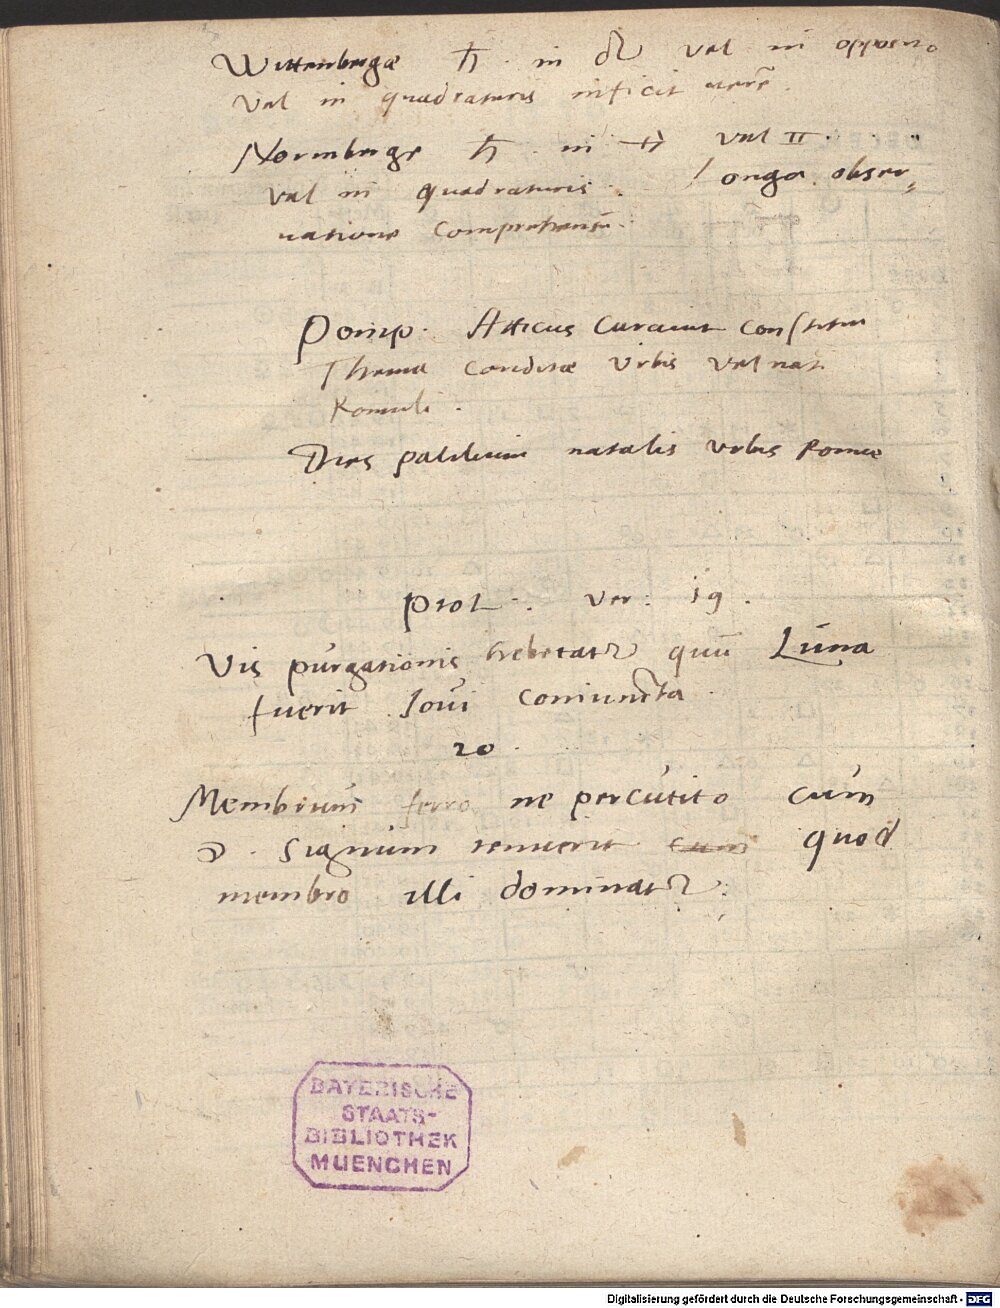 Wittenbergæ ♄ in ♌ vel in opposito
vel in quadraturis inficit aerē.
Normberge ♄ in ♐ vel ♊
vel in quadraturis. longa obser„
uatione comprehensū.
Pomp. Atticus curauit constitui
Thema conditæ Vrbis vel nati
Romuli.
Dies palilium natalis vrbis Romæ
Ptol. ver. 19.
Vis purgationis hebetatꝛ quū Luna
fuerit Ioui coniuncta.
20.
Membrum ferro ne percutito cum
☽ signum tenuerit quod
membro illi dominatꝛ.
BAYERISCHE
STAATS-
BIBLIOTHEK
MUENCHEN
Digitalisierung gefördert durch die Deutsche Forschungsgemeinschaft - DFG